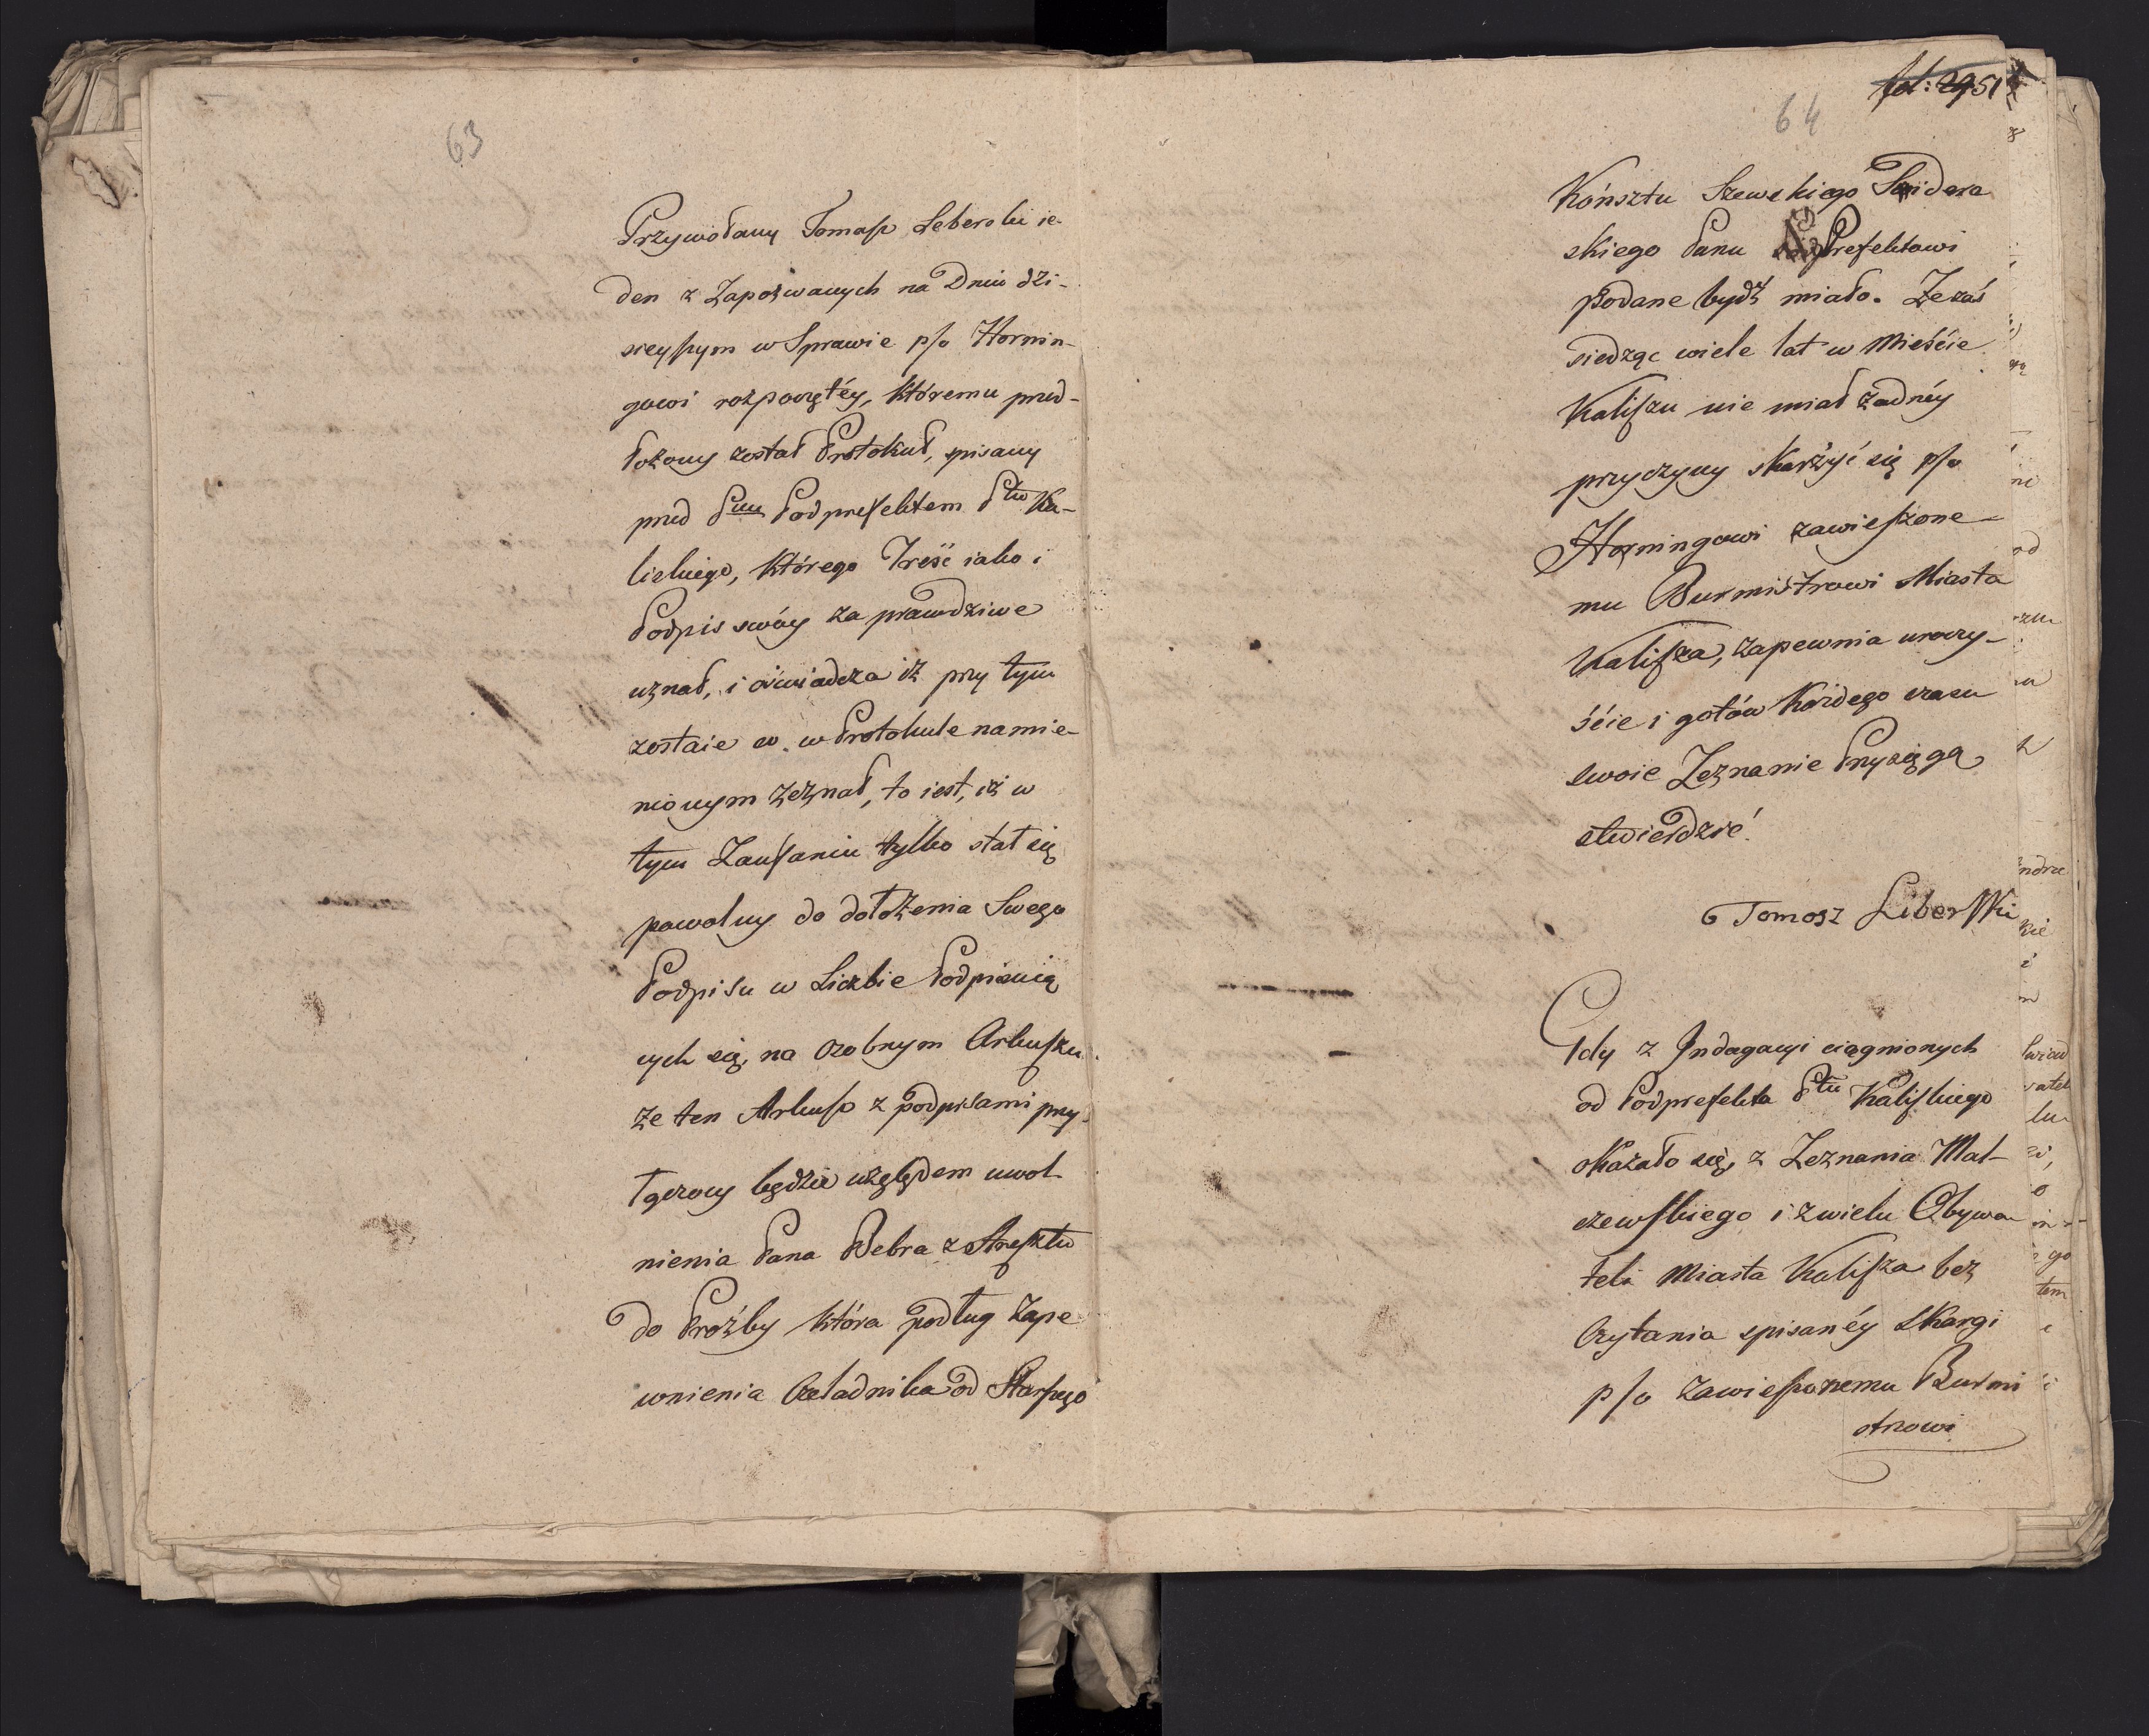 63
Przywołany Tomasz Leberski ie-
den z Zapozwanych na Dniu dzi-
sieyszym w Sprawie p/o Hornin-
gowi rozpoczętéy, któremu przed-
łożony został Protokuł, spisany
przed Pnm Podprefektem Ptu Ka-
liskiego, którego Treść iako i
Podpis swóy za prawdziwe
uznał, i oświadcza iż przy tym
zostaie co w Protokule namie-
nionym zeznał, to iest, iż w
tym Zaufaniu tylko stał się
powolny do dołożenia Swego
Podpisu w Liczbie Podpisuią
cych się, na ozobnym Arkuszu
że ten Arkusz z podpisami przy-
łączony będzie względem uwol-
nienia Pana Bebra z Aresztu
do Proźby która podług Zape
wnienia Czeladnika od Starszego
fol: 29 51
64
Kónsztu Szewskiego Swidera
skiego Panu Prefektowi
podane bydź miało. Że zaś
siedząc wiele lat w Mieście
Kaliszu nie miał żadnéy
przyczyny skarżyć się p/o
Horningowi zawieszone-
mu Burmistrowi Miasta
Kalisza, zapewnia uroczy-
ście i gotów każdego czasu
swoie Zeznanie Przysięgą
stwierdzić.
Tomosz Liberski
Gdy z Indagacyi ciągnionych
od Podprefekta Ptu Kaliskiego
okazało się, z Zeznania Mal-
czewskiego i zwielu Obywa-
teli Miasta Kalisza bez
Czytania spisanéy Skargi
p/o zawieszonemu Burmi
strowi